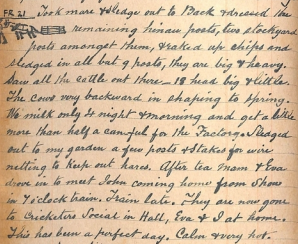 FR 21 Took mare & sledge out to Back & dressed the
remaining hinau posts, two stockyard
posts amongst them, & raked up chips and
sledged in all but 9 posts, they are big & heavy.
Saw all the cattle out there – 18 head big & little.
The cows very backward in shaping to spring.
We milk only 4 night & morning and get a little
more than half a canful for the Factory. Sledged
out to my garden a few posts & stakes for wire
netting to keep out hares. After tea Mam & Eva
drove in to meet John coming home from Show
in 7 o'clock train. Train late. They are now gone
to Cricketers Social in Hall, Eva & I at home.
This has been a perfect day. Calm & very hot.